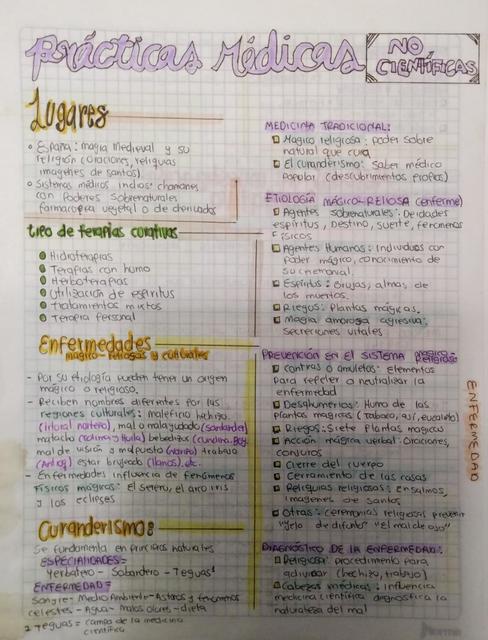 Prácticas Médicas
NO CIENTÍFICAS
Lugares
España: magia medieval y su
religión (oraciones, reliquias
imagenes de santos)
Sistemas médicos indios: chamanes
con Poderes Sobrenaturales
farmacopea vegetal o de derivados
tipo de terapias curativas
Hidroterapias
Terapias con humo
Herboterapias
Utilización de espíritus
Tratamientos mixtos
Terapia personal
Enfermedades
mágico-religiosas y culturales
- Por su etiología pueden tener un origen
mágico o religioso.
- Reciben nombres diferentes por las
regiones culturales: maleficio habizo
(litoral narteño), mal o malayudado (santander)
matacho (tolima y Huila) bebedizos (cundina.Boy.
mal de visión y malpuesto (nariño) trabajo
(Antioq) estar brujeado (llanos), etc.
- Enfermedades influencia de fenómenos
Físicos mágicos: El sereno, el arco iris
y los eclipses
Curanderismo:
Se fundamenta en principios naturales
ESPECIALIDADES=
Yerbatero - Sobandero - Teguas²
ENFERMEDAD=
Sangre - Medio Ambiente - Astros y fenómenos
celestes - Agua - Malos olores - dieta
2 Teguas = campo de la medicina
científica
MEDICINA TRADICIONAL:
Magico religiosa: poder sobre
natural que cura
El curanderismo: Saber médico
popular (descubrimientos propios)
ETIOLOGÍA MÁGICO-RELIOSA (enferme)
Agentes sobrenaturales: Deidades
espíritus, Destino, suerte, fenomenos
Físicos
Agentes Humanos: Individuos con
poder mágico, conocimiento de
su ceremonial.
Espíritus: Brujas, almas, de
los muertos.
Riegos: Plantas mágicas.
Magia amorosa agresiva:
Secreciones vitales
PREVENCIÓN EN EL SISTEMA mágico-
religioso
Contras o amuletos: Elementos
Para repeler o neutralizar la
enfermedad
Desahumerios: Humo de las
plantas magicas (tabaco, ají, eucalito)
Riegos: Siete plantas magicas
Acción mágica verbal: Oraciones,
conjuros
Cierre del cuerpo
Cerramiento de las casas
Reliquias religiosas: ensalmos,
imágenes de santos
Otras: ceremonias religiosas prevenir
"yelo de difunto" "El mal de ojo"
DIAGNÓSTICO DE LA ENFERMEDAD:
Religiosa: procedimiento para
adivinar (hechizo, trabajo)
Cabezas médicas: influencia
medicina científica diagnostica la
naturaleza del mal
ENFERMEDAD